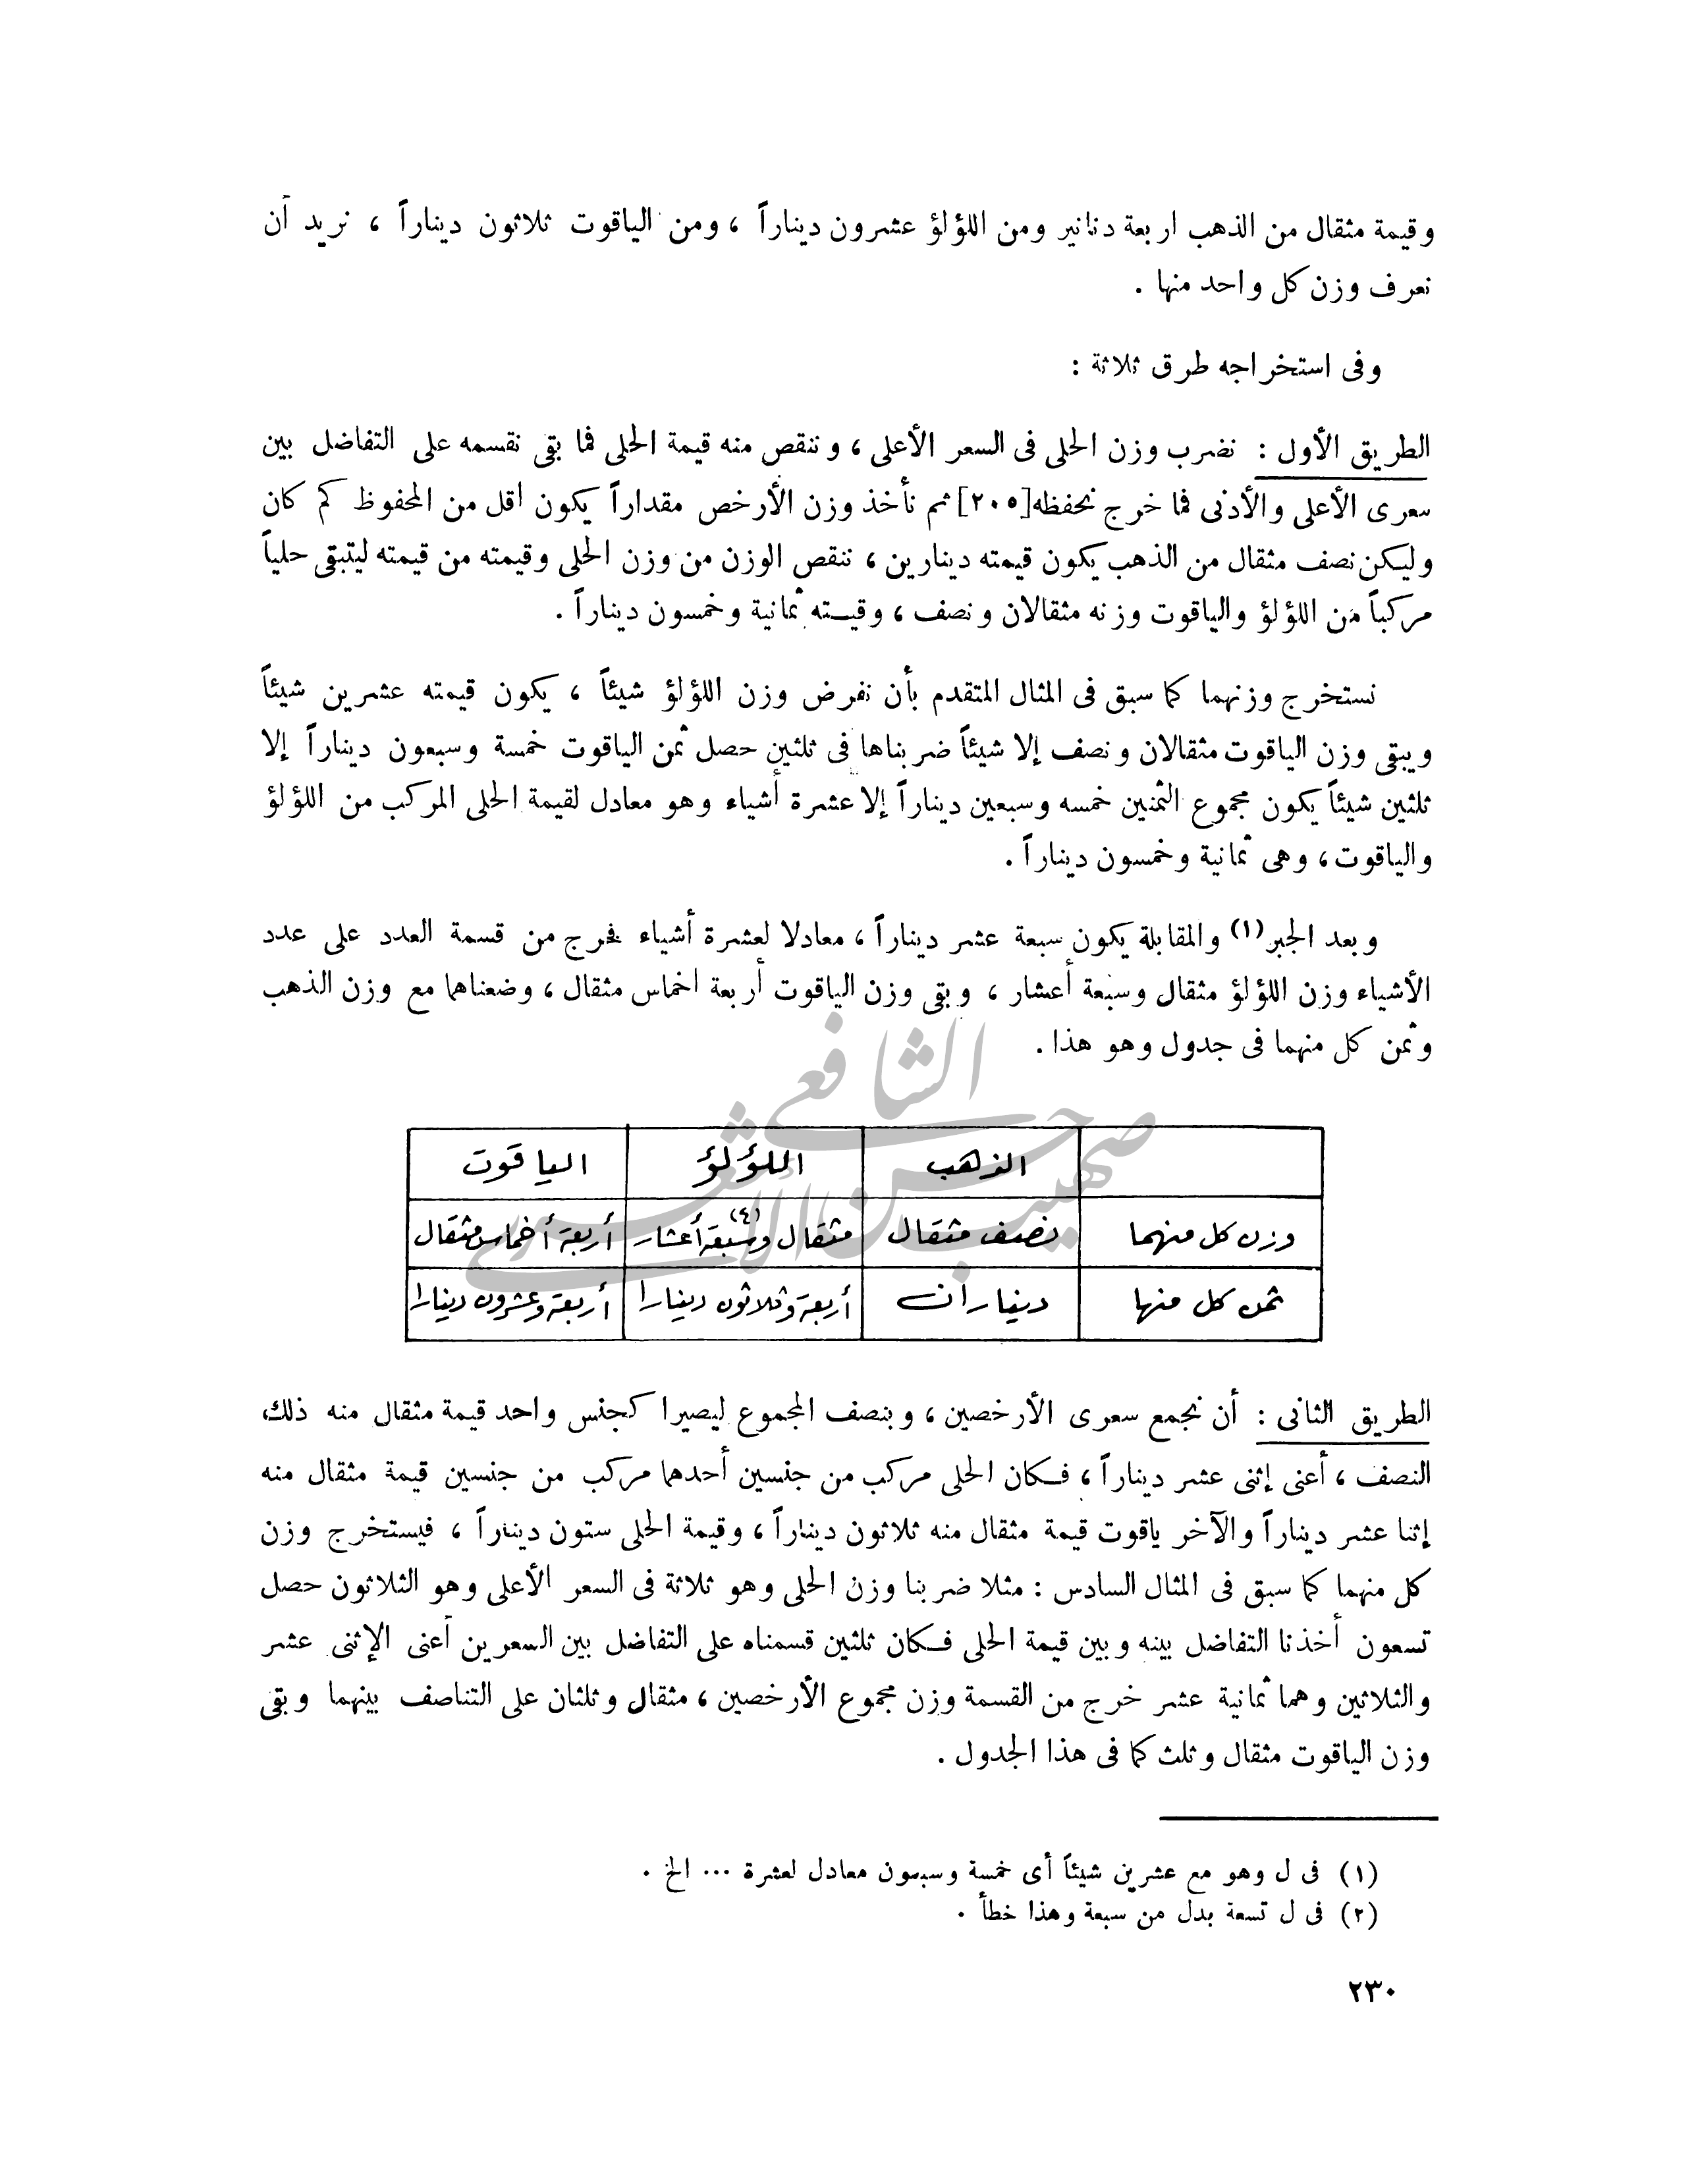 وقيمة مثقال من الذهب اربعة دنانير ومن اللؤلؤ عشرون ديناراً ، ومن الياقوت ثلاثون ديناراً ، نريد أن
نعرف وزن كل واحد منها .
وفى استخراجه طرق ثلاثة :
الطريق الأول : نضرب وزن الحلى فى السعر الأعلى ، وننقص منه قيمة الحلى فما بقى نقسمه على التفاضل بين
سعرى الأعلى والأدنى فما خرج نحفظه [٢٠٥] ثم نأخذ وزن الأرخص مقداراً يكون أقل من المحفوظ كم كان
وليكن نصف مثقال من الذهب يكون قيمته دينارين ، ننقص الوزن من وزن الحلى وقيمته من قيمته ليتبقى حلياً
مركباً من اللؤلؤ والياقوت وزنه مثقالان ونصف ، وقيسته ثمانية وخمسون ديناراً .
نستخرج وزنهما كما سبق فى المثال المتقدم بأن نفرض وزن اللؤلؤ شيئاً ، يكون قيمته عشرين شيئاً
ويبقى وزن الياقوت مثقالان ونصف إلا شيئاً ضربناها فى ثلثين حصل ثمن الياقوت خمسة وسبعون ديناراً إلا
ثلثين شيئاً يكون مجموع الثمنين خمسه وسبعين ديناراً إلا عشرة أشياء وهو معادل لقيمة الحلى المركب من اللؤلؤ
والياقوت ، وهى ثمانية وخمسون ديناراً .
وبعد الجبر (١) والمقابلة يكون سبعة عشر ديناراً ، معادلا لعشرة أشياء فخرج من قسمة العدد على عدد
الأشياء وزن اللؤلؤ مثقال وسبعة أعشار ، وبقى وزن الياقوت أربعة اخماس مثقال ، وضعناهما مع وزن الذهب
وثمن كل منهما فى جدول وهو هذا .
الذهب اللؤلؤ الياقوت
وزن كل منهما نصف مثقال مثقال وسبعة (٤) أعشار أربعة أخماس مثقال
ثمن كل منها ديناران أربعة وثلاثون دينارا أربعة وعشرون دينارا
الطريق الثانى : أن نجمع سعرى الأرخصين ، وبنصف المجموع ليصيرا كجنس واحد قيمة مثقال منه ذلك
النصف ، أعنى إثنى عشر ديناراً ، فكان الحلى مركب من جنسين أحدهما مركب من جنسين قيمة مثقال منه
إثنا عشر ديناراً والآخر ياقوت قيمة مثقال منه ثلاثون ديناراً ، وقيمة الحلى ستون ديناراً ، فيستخرج وزن
كل منهما كما سبق فى المثال السادس : مثلا ضربنا وزن الحلى وهو ثلاثة فى السعر الأعلى وهو الثلاثون حصل
تسعون أخذنا التفاضل بينه وبين قيمة الحلى فكان ثلثين قسمناه على التفاضل بين السعرين أعنى الإثنى عشر
والثلاثين وهما ثمانية عشر خرج من القسمة وزن مجموع الأرخصين ، مثقال وثلثان على التناصف بينهما وبقى
وزن الياقوت مثقال وثلث كما فى هذا الجدول .
(١) فى ل وهو مع عشرين شيئاً أى خمسة وسبعون معادل لعشرة ... الخ .
(٢) فى ل تسعة بدل من سبعة وهذا خطأ .
٢٣٠
صهيب حسن الشافعي الأشعري